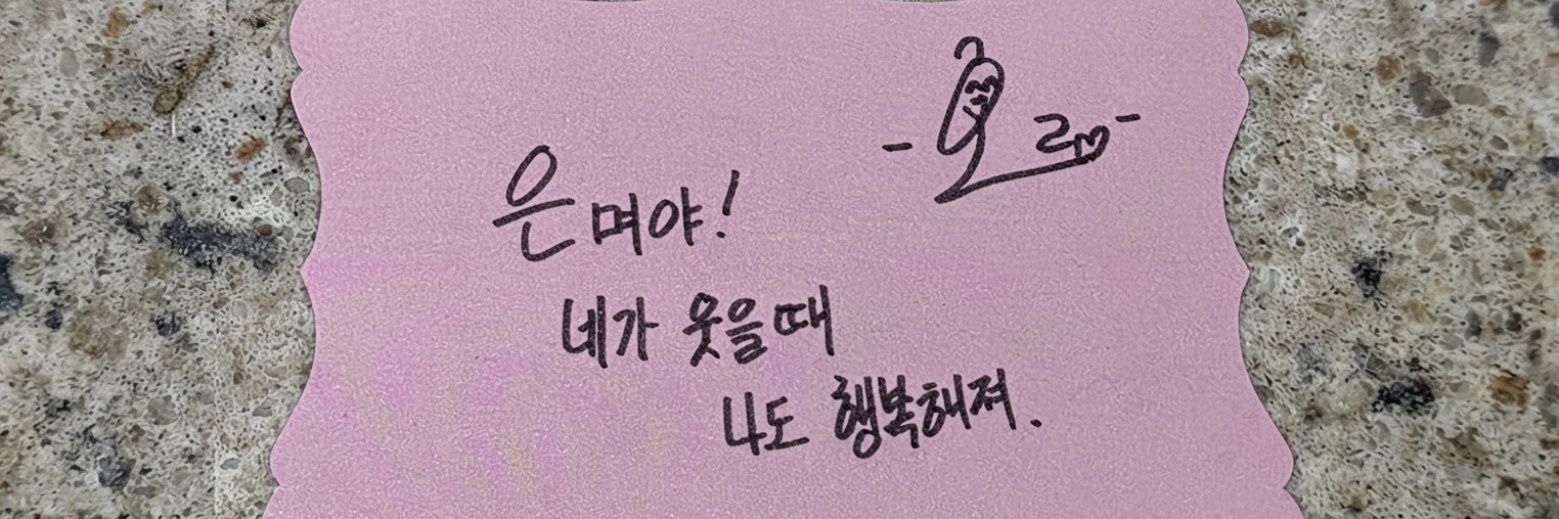 은며야!
네가 웃을때
나도 행복해져.